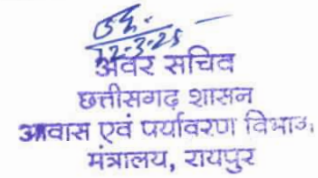 12-3-25
अवर सचिव
छत्तीसगढ़ शासन
आवास एवं पर्यावरण विभाग,
मंत्रालय, रायपुर